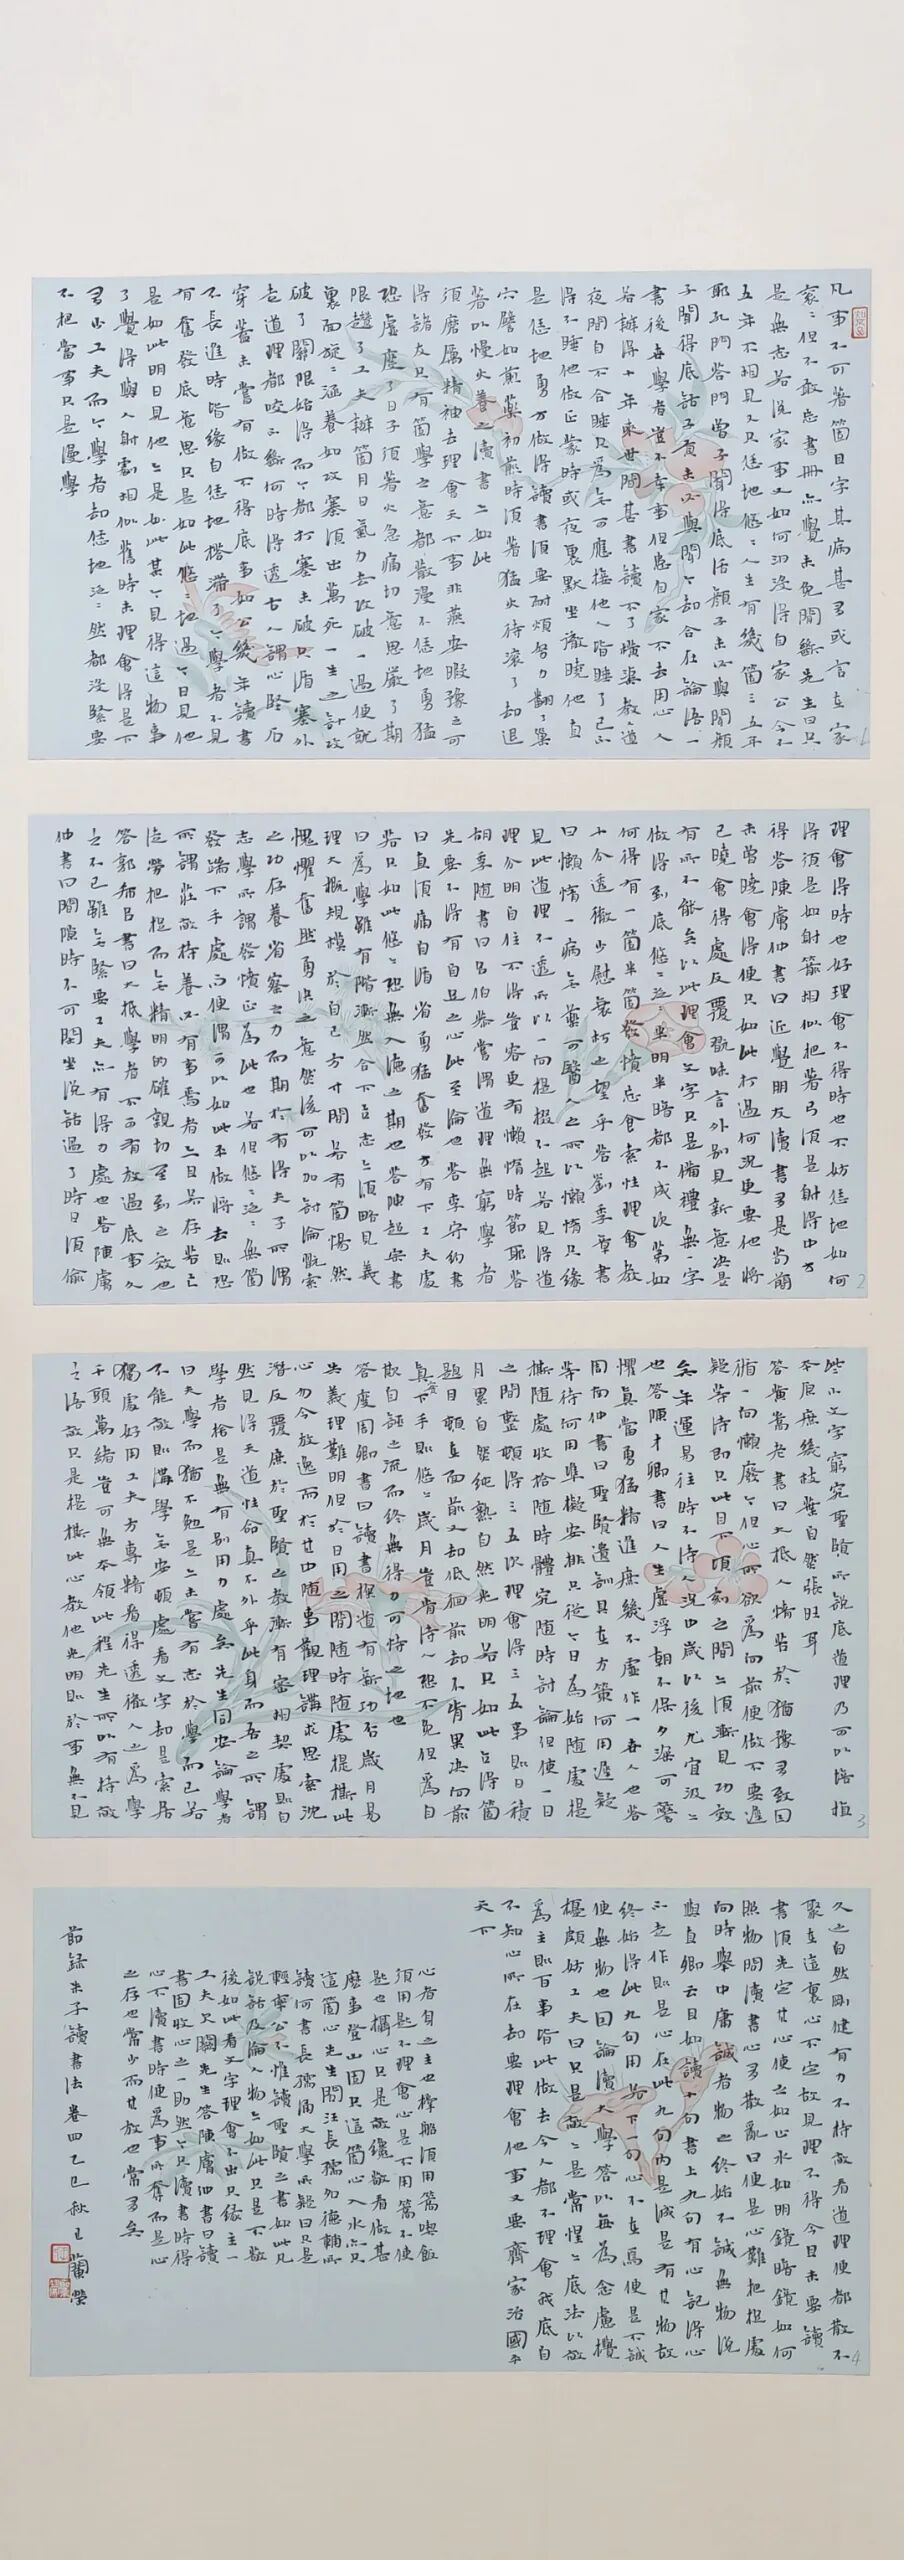 凡事不可著箇且字其病甚多或言在家
衮々但不敢忘書冊亦覺未免閒斷先生曰只
是無志若說家事又如何汩沒得自家公今三
五年不相見又只恁地悠々人生有幾箇三五年
耶孔門答問曾子聞得底話顏子未必與聞顏
子聞得底話子貢未必與聞今却合在論語一
書後世學者豈不幸事但患自家不去用心人
若辦得十年來世間甚書讀不了橫渠教人道
夜間自不合睡只為無可應接他人皆睡了己不
得不睡他做正蒙時或夜裏默坐徹曉他直
是恁地勇方做得讀書須要耐煩努力翻了巢
穴譬如煎藥初煎時須著猛火待滾了却退
著以慢火養之讀書亦如此
須磨厲精神去理會天下事非燕安暇豫之可
得諸友只有箇學之意都散漫不恁地勇猛
恐虛度了日子須著火急痛切意思嚴了期
限趲了工夫辦箇月日氣力去攻破一過便就
裏面旋々涵養如攻寨須出萬死一生之計攻
破了關限始得而今都打寨未破只循寨外
走道理都咬不斷何時得透古人謂心堅石
穿蓋未嘗有做不得底事如公幾年讀書
不長進時皆緣自恁地搭滯了今學者不見
有奮發底意思只是如此悠々地過今日見他
是如此明日見他亦是如此某今見得這物事
了覺得與人射處相似舊時未理會得是下
多少工夫而今學者却恁地泛々然都沒緊要
不把當事只是漫學
理會得時也好理會不得時也不妨恁地如何
得須是如射箭相似把著弓須是射得中方
得答陳膚仲書曰近覺朋友讀書多是苟簡
未曾曉會得便只如此打過何況更要他將
已曉會得處反覆玩味言外別見新意決是
有所不能矣以此理會文字只是備禮無一字
做得到底悠々泛々半明半暗都不成次第如
何得有一箇半箇發憤忘食索性理會教
十分透徹少慰衰朽之望乎答劉季章書
曰懶惰一病無藥可醫人之所以懶惰只緣
見此道理不透所以一向提掇不起若見得道
理分明自住不得豈容更有懶惰時節耶答
胡季隨書曰呂伯恭嘗謂道理無窮學者
先要不得有自足之心此至論也答李守約書
曰直須痛自循省勇猛奮發方有下工夫處
若只如此悠々恐無入德之期也答陳超宗書
曰為學雖有階漸然合下立志亦須略見義
理大概規模於自己方寸間若有箇惕然
愧懼奮然勇決之意然後可以加討論玩索
之功存養省察之力而期於有得夫子所謂
志學所謂發憤正為此也若但悠々泛々無箇
發端下手處而便謂可以如此平做將去則恐
所謂莊敬持養必有事焉者亦且若存若亡
徒勞把捉而無精明的確親切至到之效也
答郭希呂書曰大抵學者不可有放過底事久
之不已雖無緊要工夫亦有得力處也答陳膚
仲書曰閒隙時不可閒坐說話過了時日須偷
些小文字窮究聖賢所說底道理乃可以培植
本原庶幾枝葉自然張旺耳
答黃嵩老書曰大抵人情苦於猶豫多致因
循一向懶廢今但心所欲為向前便做不要遲
疑等待即只此目下頃刻之間亦須漸見功效
矣年運易往時不待人況四歲以後尤宜汲々
也答陳才卿書曰人生虛浮朝不保夕深可警
懼真當勇猛精進庶幾不虛作一番人也答
周南仲書曰聖賢遺訓具在方策何用遲疑
等待何用準擬安排只從今日為始隨處提
撕隨處收拾隨時體究隨時討論但使一日
之間整頓得三五次理會得三五事則日積
月累自然純熟自然光明若只如此立得箇
題目頓在面前又却低徊前却不肯果決向前
真實下手則悠々歲月豈肯待人恐不免但為自
欺自誣之流而終無得力可恃之地也
答度周卿書曰讀書探道有新功否歲月易
失義理難明但於日用之間隨時隨處提撕此
心勿令放逸而於其中隨事觀理講求思索沈
潛反覆庶於聖賢之教漸有密相契處則自
然見得天道性命真不外乎此身而吾之所謂
學者捨是無有別用力處矣先生同安論學者
曰夫學而猶不勉是亦未嘗有志於學而已若
不能敬則講學無安頓處看文字却是索居
獨處好用工夫方專精看得透徹人之為學
千頭萬緒豈可無本領此程先生所以有持敬
之語敬只是提撕此心教他光明則於事無不見
久之自然剛健有力不持敬看道理便都散不
聚在這裏心不定故見理不得今且未要讀
書須先定其心使之如止水如明鏡暗鏡如何
照物問讀書心多散亂曰便是心難把捉處
向時舉中庸誠者物之終始不誠無物說
與直卿云且如讀十句書上九句有心記得心
不走作則是心在此九句內是誠是有其物故
終始得此九句用若下一句心不在焉便是不誠
便無物也因論讀大學答以每為念慮攪
擾頗妨工夫曰只是敬々是常惺々底法以敬
為主則百事皆此做去今人都不理會我底自
不知心所在却要理會他事又要齊家治國平
天下
心者身之主也撐船須用篙喫飯
須用匙不理會心是不用篙不使
匙也攝心只是敬纔敬看做甚
麼事登山固只這箇心入水亦只
這箇心先生問汪長孺劉德輔所
讀何書長孺誦大學所疑曰只是
輕率公不惟讀聖賢之書如此凡
說話及論人物亦如此只是不敬
後如此看文字理會不出只緣主一
工夫欠闕先生答陳膚仲書曰讀
書固收心之一助然今只讀書時得
心不讀書時便為事所奪則是心
之存也常少而其放也常多矣
節錄朱子讀書法卷四乙巳秋 王蘭瑩